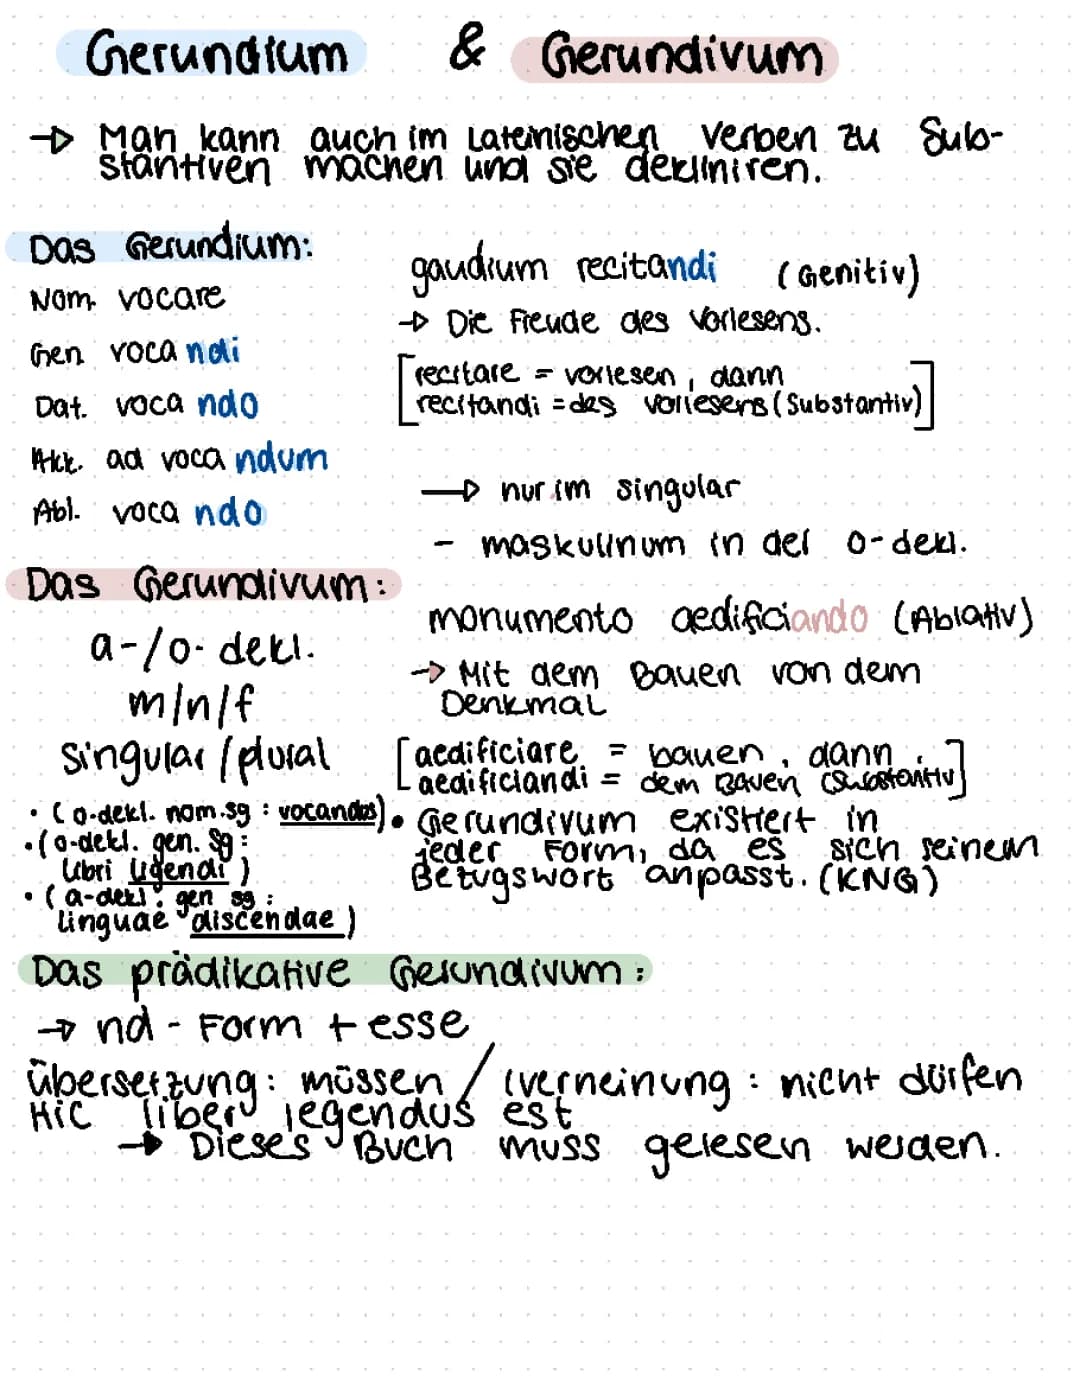 Gerundium & Gerundivum
→ Man kann auch im Lateinischen Verben zu Sub-
stantiven machen und sie dekliniren.
Das Gerundium:
Nom. vocare
Gen vocandi
Dat. vocando
Akk. ad vocandum
Abl. vocando
gaudium recitandi (Genitiv)
→ Die Freude des Vorlesens.
[recitare = vorlesen, dann
recitandi = des vorlesens (Substantiv)]
→ nur im singular
- maskulinum in der o-dekl.
Das Gerundivum:
a-/o-dekl.
m/n/f
Singular/plural
• (o-dekl. nom.sg: vocandus)
• (o-dekl. gen. Sg:
libri ligendi)
• (a-dekl. gen sg:
linguae discendae)
monumento aedificiando (Ablativ)
→ Mit dem Bauen von dem
Denkmal
[aedificiare = bauen, dann
aedificiandi = dem Bauen (Substantiv)]
• Gerundivum existiert in
jeder Form, da es sich seinem
Bezugswort anpasst. (KNG)
Das prädikative Gerundivum:
→ nd-Form + esse
übersetzung: müssen / (verneinung: nicht dürfen
Hic liber legendus est
→ Dieses Buch muss gelesen werden.